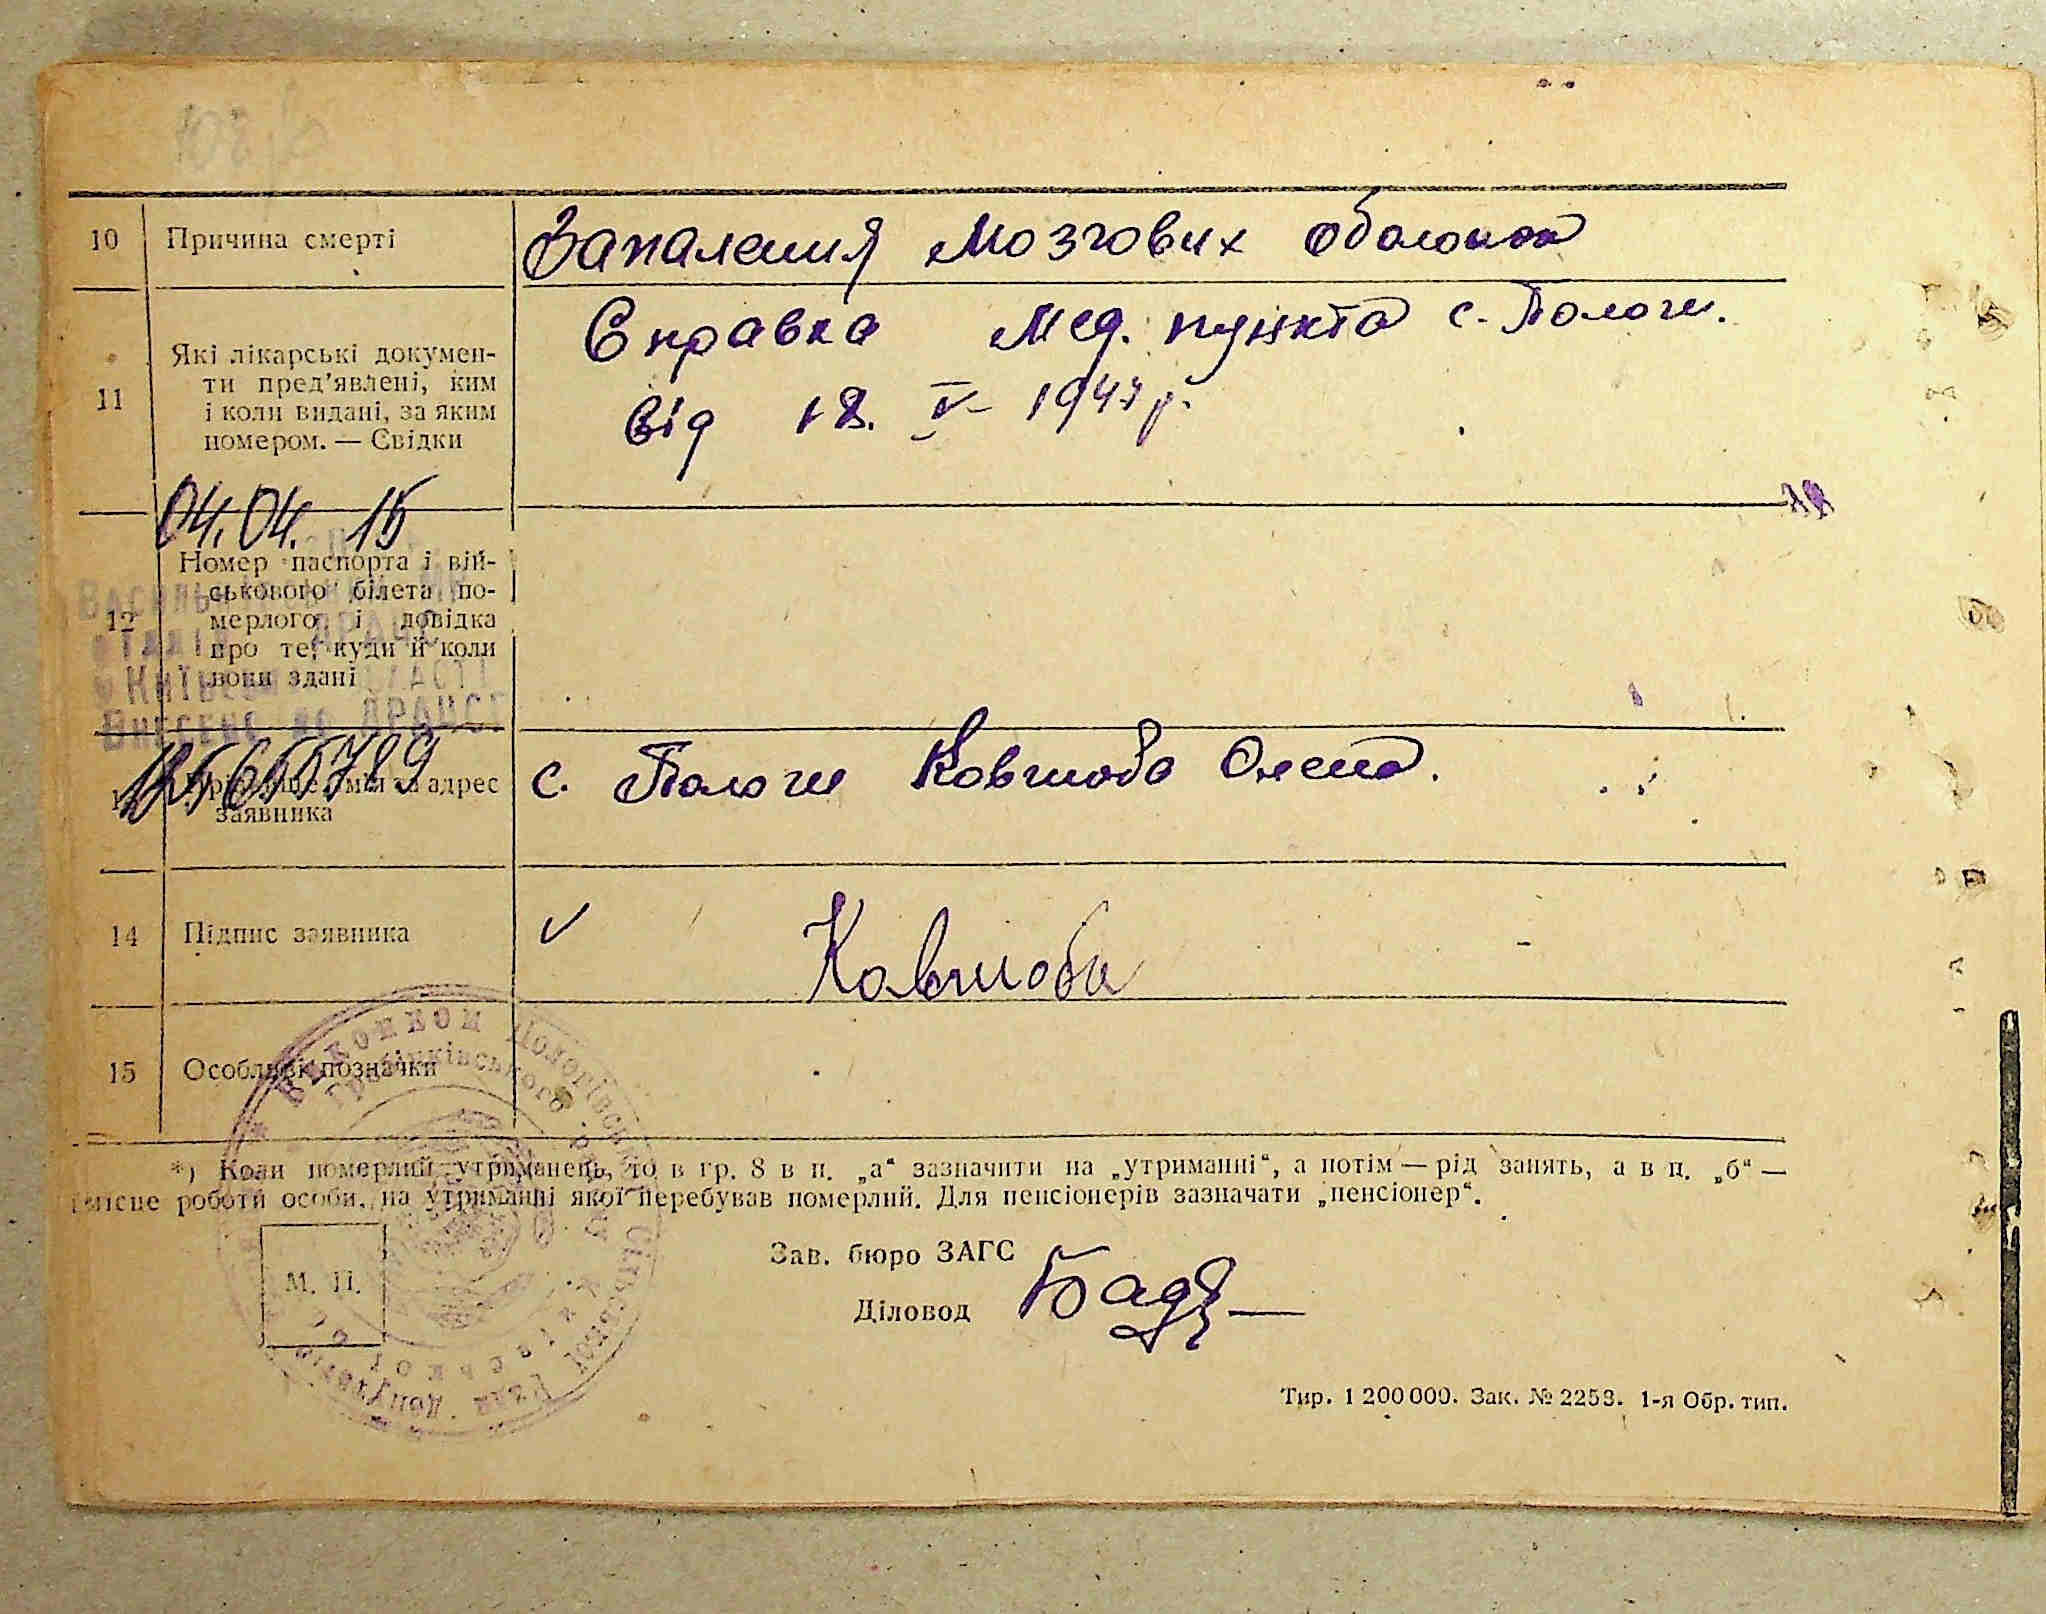 10 Причина смерті Запалення мозгових оболонок
11 Які лікарські докумен-
ти пред'явлені, ким
і коли видані, за яким
номером. — Свідки
Справка мед. пункта с. Пологи.
Від 18. V- 1947 р.
04.04. 15
12 Номер паспорта і вій-
ськового білета по-
мерлого і довідка
про те, куди й коли
вони здані
Внесено до ДРАЦСГ
адрес
заявника
с. Пологи Ковшоба Олена.
14 Підпис заявника ✓ Ковшоба
15 Особливі позначки
*) Коли померлий утриманець, то в гр. 8 в п. „а“ зазначити на „утриманні“, а потім — рід занять, а в п. „б“ —
місце роботи особи, на утриманні якої перебував померлий. Для пенсіонерів зазначати „пенсіонер“.
М. П.
Зав. бюро ЗАГС
Діловод
Тир. 1 200 000. Зак. № 2253. 1-я Обр. тип.